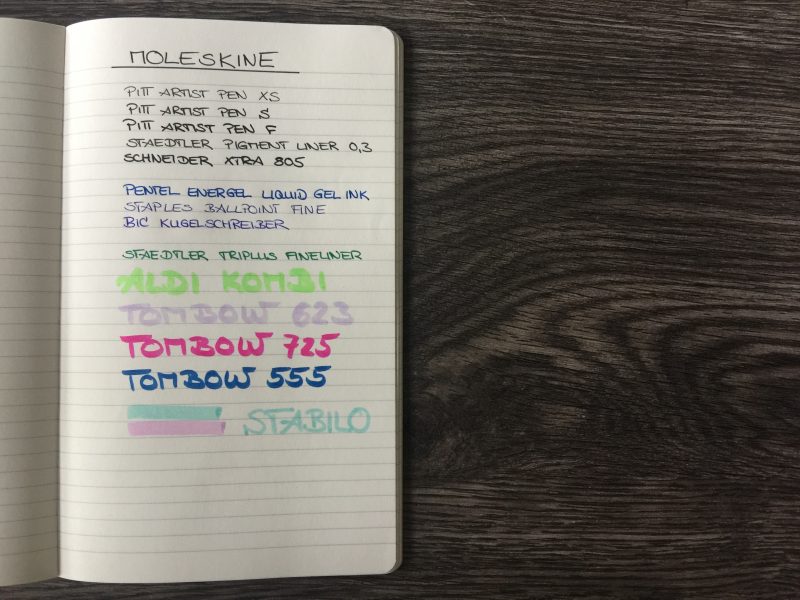 MOLESKINE
PITT ARTIST PEN XS
PITT ARTIST PEN S
PITT ARTIST PEN F
STAEDTLER PIGMENT LINER 0,3
SCHNEIDER XTRA 805
PENTEL ENERGEL LIQUID GEL INK
STAPLES BALLPOINT FINE
BIC KUGELSCHREIBER
STAEDTLER TRIPLUS FINELINER
ALDI KOMBI
TOMBOW 623
TOMBOW 725
TOMBOW 555
STABILO